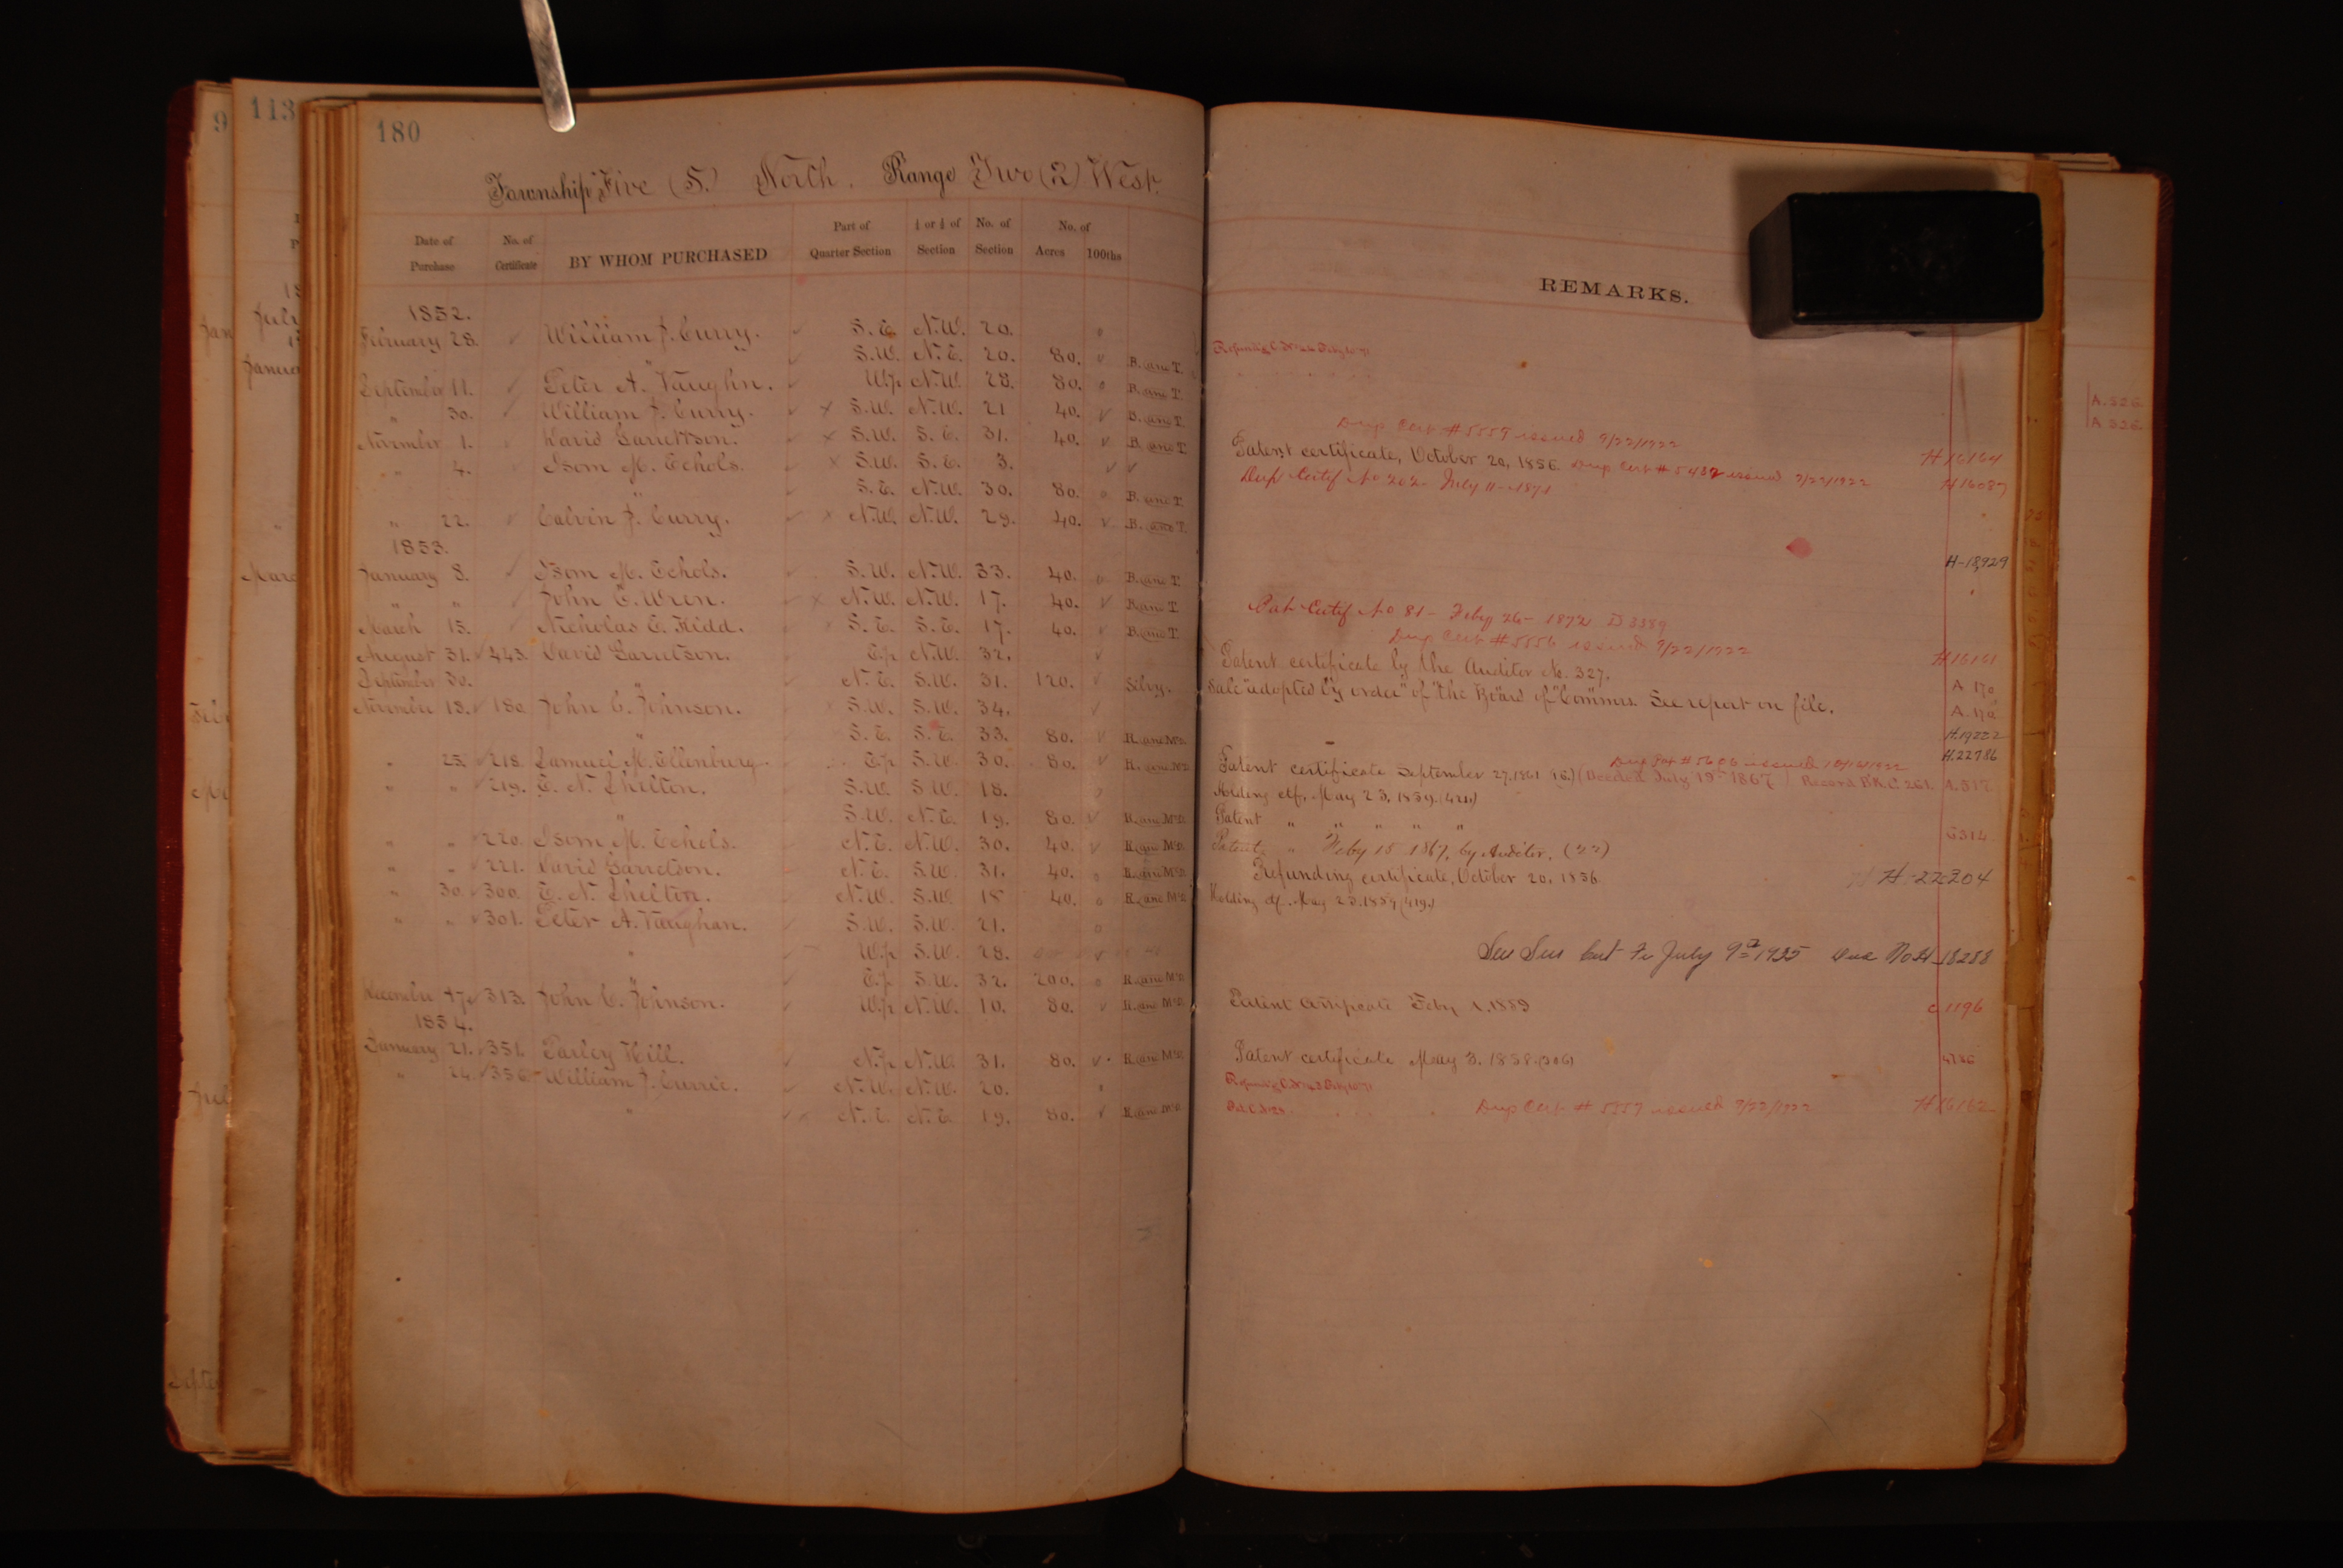 9
113
180
Township Five (5.) North. Range Two (2) West.
Date of Purchase No. of Certificate BY WHOM PURCHASED Part of Quarter Section ½ or ¼ of Section No. of Section No. of Acres 100ths
REMARKS.
1852.
February 28. William J. Curry. S.E. N.W. 20.
" S.W. N.E. 20. 80. B. and T.
September 11. Peter A. Vaughn. W.½ N.W. 28. 80. B. and T.
" 30. William J. Curry. S.W. N.W. 21 40. B. and T.
Dup Cert # 5559 issued 9/22/1922
November 1. David Garrettson. S.W. S.E. 31. 40. B. and T. Patent certificate, October 20, 1856. Dup Cert # 5432 issued 9/22/1922 H 16164
" 4. Isom M. Echols. S.W. S.E. 3. Dup Certif No 202 - July 11 - 1871 H 16087
" S.E. N.W. 30. 80. B. and T.
" 22. Calvin J. Curry. N.W. N.W. 29. 40. B. and T.
1853.
January 8. Isom M. Echols. S.W. N.W. 33. 40. B. and T. H-18,929
" " John E. Wren. N.W. N.W. 17. 40. B. and T.
March 15. Nicholas E. Kidd. S.E. S.E. 17. 40. B. and T. Pat Certif No 81 - Feby 26 - 1872 D 3389
Dup Cert # 5556 issued 9/22/1922 H 16161
August 31. 443. David Garretson. E.½ N.W. 32. Patent certificate by the Auditor No. 327. A 170
September 30. " N.E. S.W. 31. 120. Silvy. Sale adopted by order of the Board of Commrs. See report on file. A 170
November 18. 180. John C. Johnson. S.W. S.W. 34. H.19222
" S.E. S.E. 33. 80. R. and McD. H.22786
Dup Pat # 5606 issued 10/16/1922
" 25. 218. Samuel M. Ellenburg. E.½ S.W. 30. 80. R. and McD. Patent certificate September 27, 1861 (16.) (Deeded July 19th 1867) Record Bk C. 261. A. 517
" " 219. E. N. Shelton. S.W. S.W. 18. Holding ctf. May 23, 1859. (421.)
" S.W. N.E. 19. 80. R. and McD. Patent " " " " "
" " 220. Isom M. Echols. N.E. N.W. 30. 40. R. and McD. Patent " Feby 15 1867, by Auditor, (22) G314
" " 221. David Garretson. N.E. S.W. 31. 40. R. and McD. Refunding certificate, October 20, 1856. H-22204
" 30. 300. E. N. Shelton. N.W. S.W. 18 40. R. and McD. Holding ctf. May 23, 1859 (419.)
" " 301. Peter A. Vaughan. S.W. S.W. 21.
" W.½ S.W. 28. See Sec Cert Fr July 9th 1925 Doc No H-18288
E.½ S.W. 32. 200. R. and McD.
December 17. 313. John C. Johnson. W.½ N.W. 10. 80. R. and McD. Patent Certificate Feby 1, 1889 C 1196
1854.
January 21. 351. Parley Hill. N.½ N.W. 31. 80. R. and McD. Patent certificate May 3. 1858. (306)
" 24. 356. William J. Currie. N.W. N.W. 20.
" N.E. N.E. 19. 80. R. and McD. Dup Cert # 5557 issued 9/22/1922 H 16162
A. 326
A 326